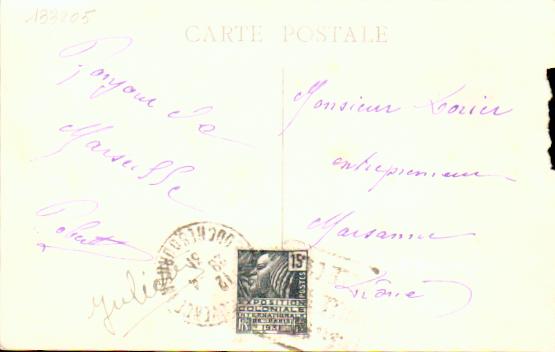 133205
CARTE POSTALE
Bonjour de
Marseille
Robert
Monsieur Lorier
entrepreneur
Marsanne
Drôme
15c
POSTES
EXPOSITION
COLONIALE
INTERNATIONALE
DE PARIS
1931